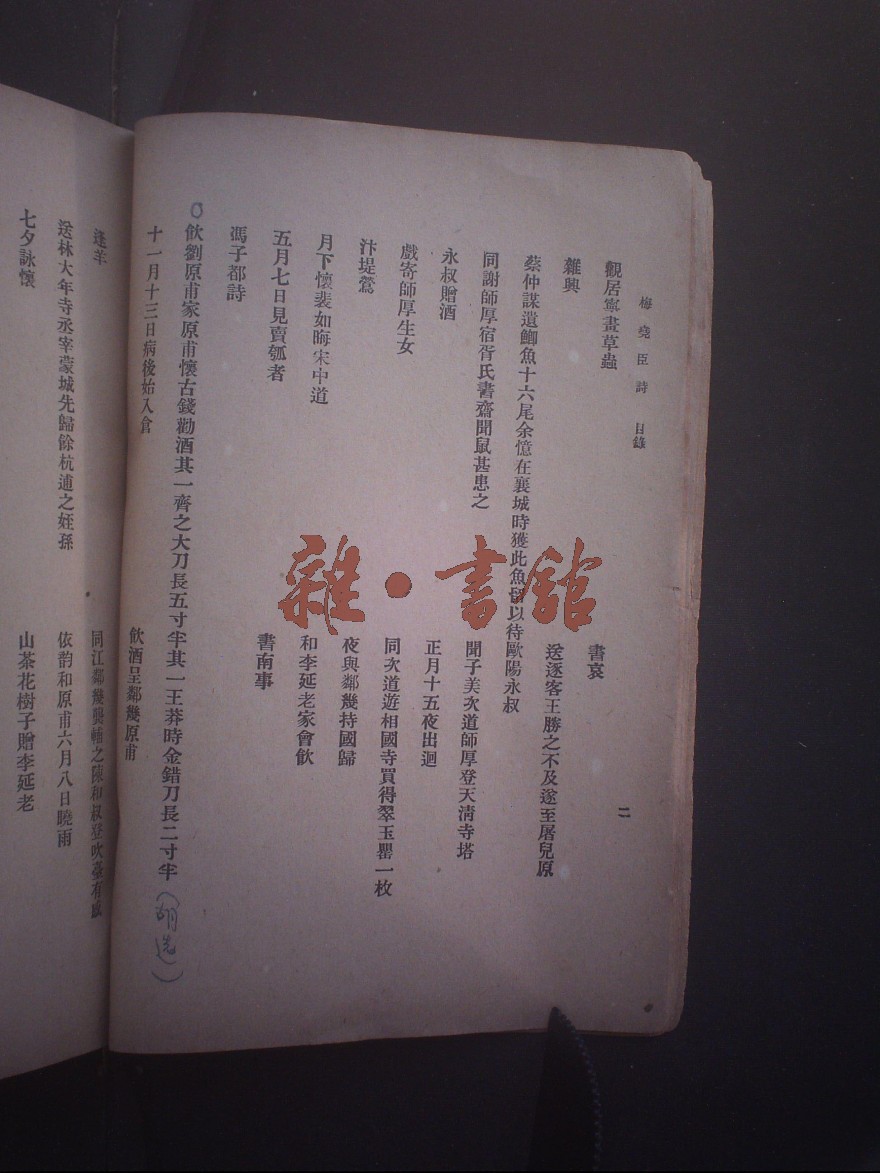 梅堯臣詩 目錄
二
觀居寧畫草蟲
書哀
雜興
送逐客王勝之不及遂至屠兒原
蔡仲謀遺鯽魚十六尾余憶在襄城時獲此魚留以待歐陽永叔
同謝師厚宿胥氏書齋聞鼠甚患之
聞子美次道師厚登天清寺塔
永叔贈酒
正月十五夜出迴
戲寄師厚生女
同次道遊相國寺買得翠玉罌一枚
汴堤鶯
夜與鄰幾持國歸
月下懷裴如晦宋中道
和李延老家會飲
五月七日見賣瓠者
書南事
馮子都詩
○飲劉原甫家原甫懷古錢勸酒其一齊之大刀長五寸半其一王莽時金錯刀長二寸半(胡选)
十一月十三日病後始入倉
飲酒呈鄰幾原甫
逢羊
同江鄰幾龔輔之陳和叔登吹臺有感
送林大年寺丞宰蒙城先歸餘杭逋之姪孫
依韵和原甫六月八日曉雨
七夕詠懷
山茶花樹子贈李延老
雜·書館